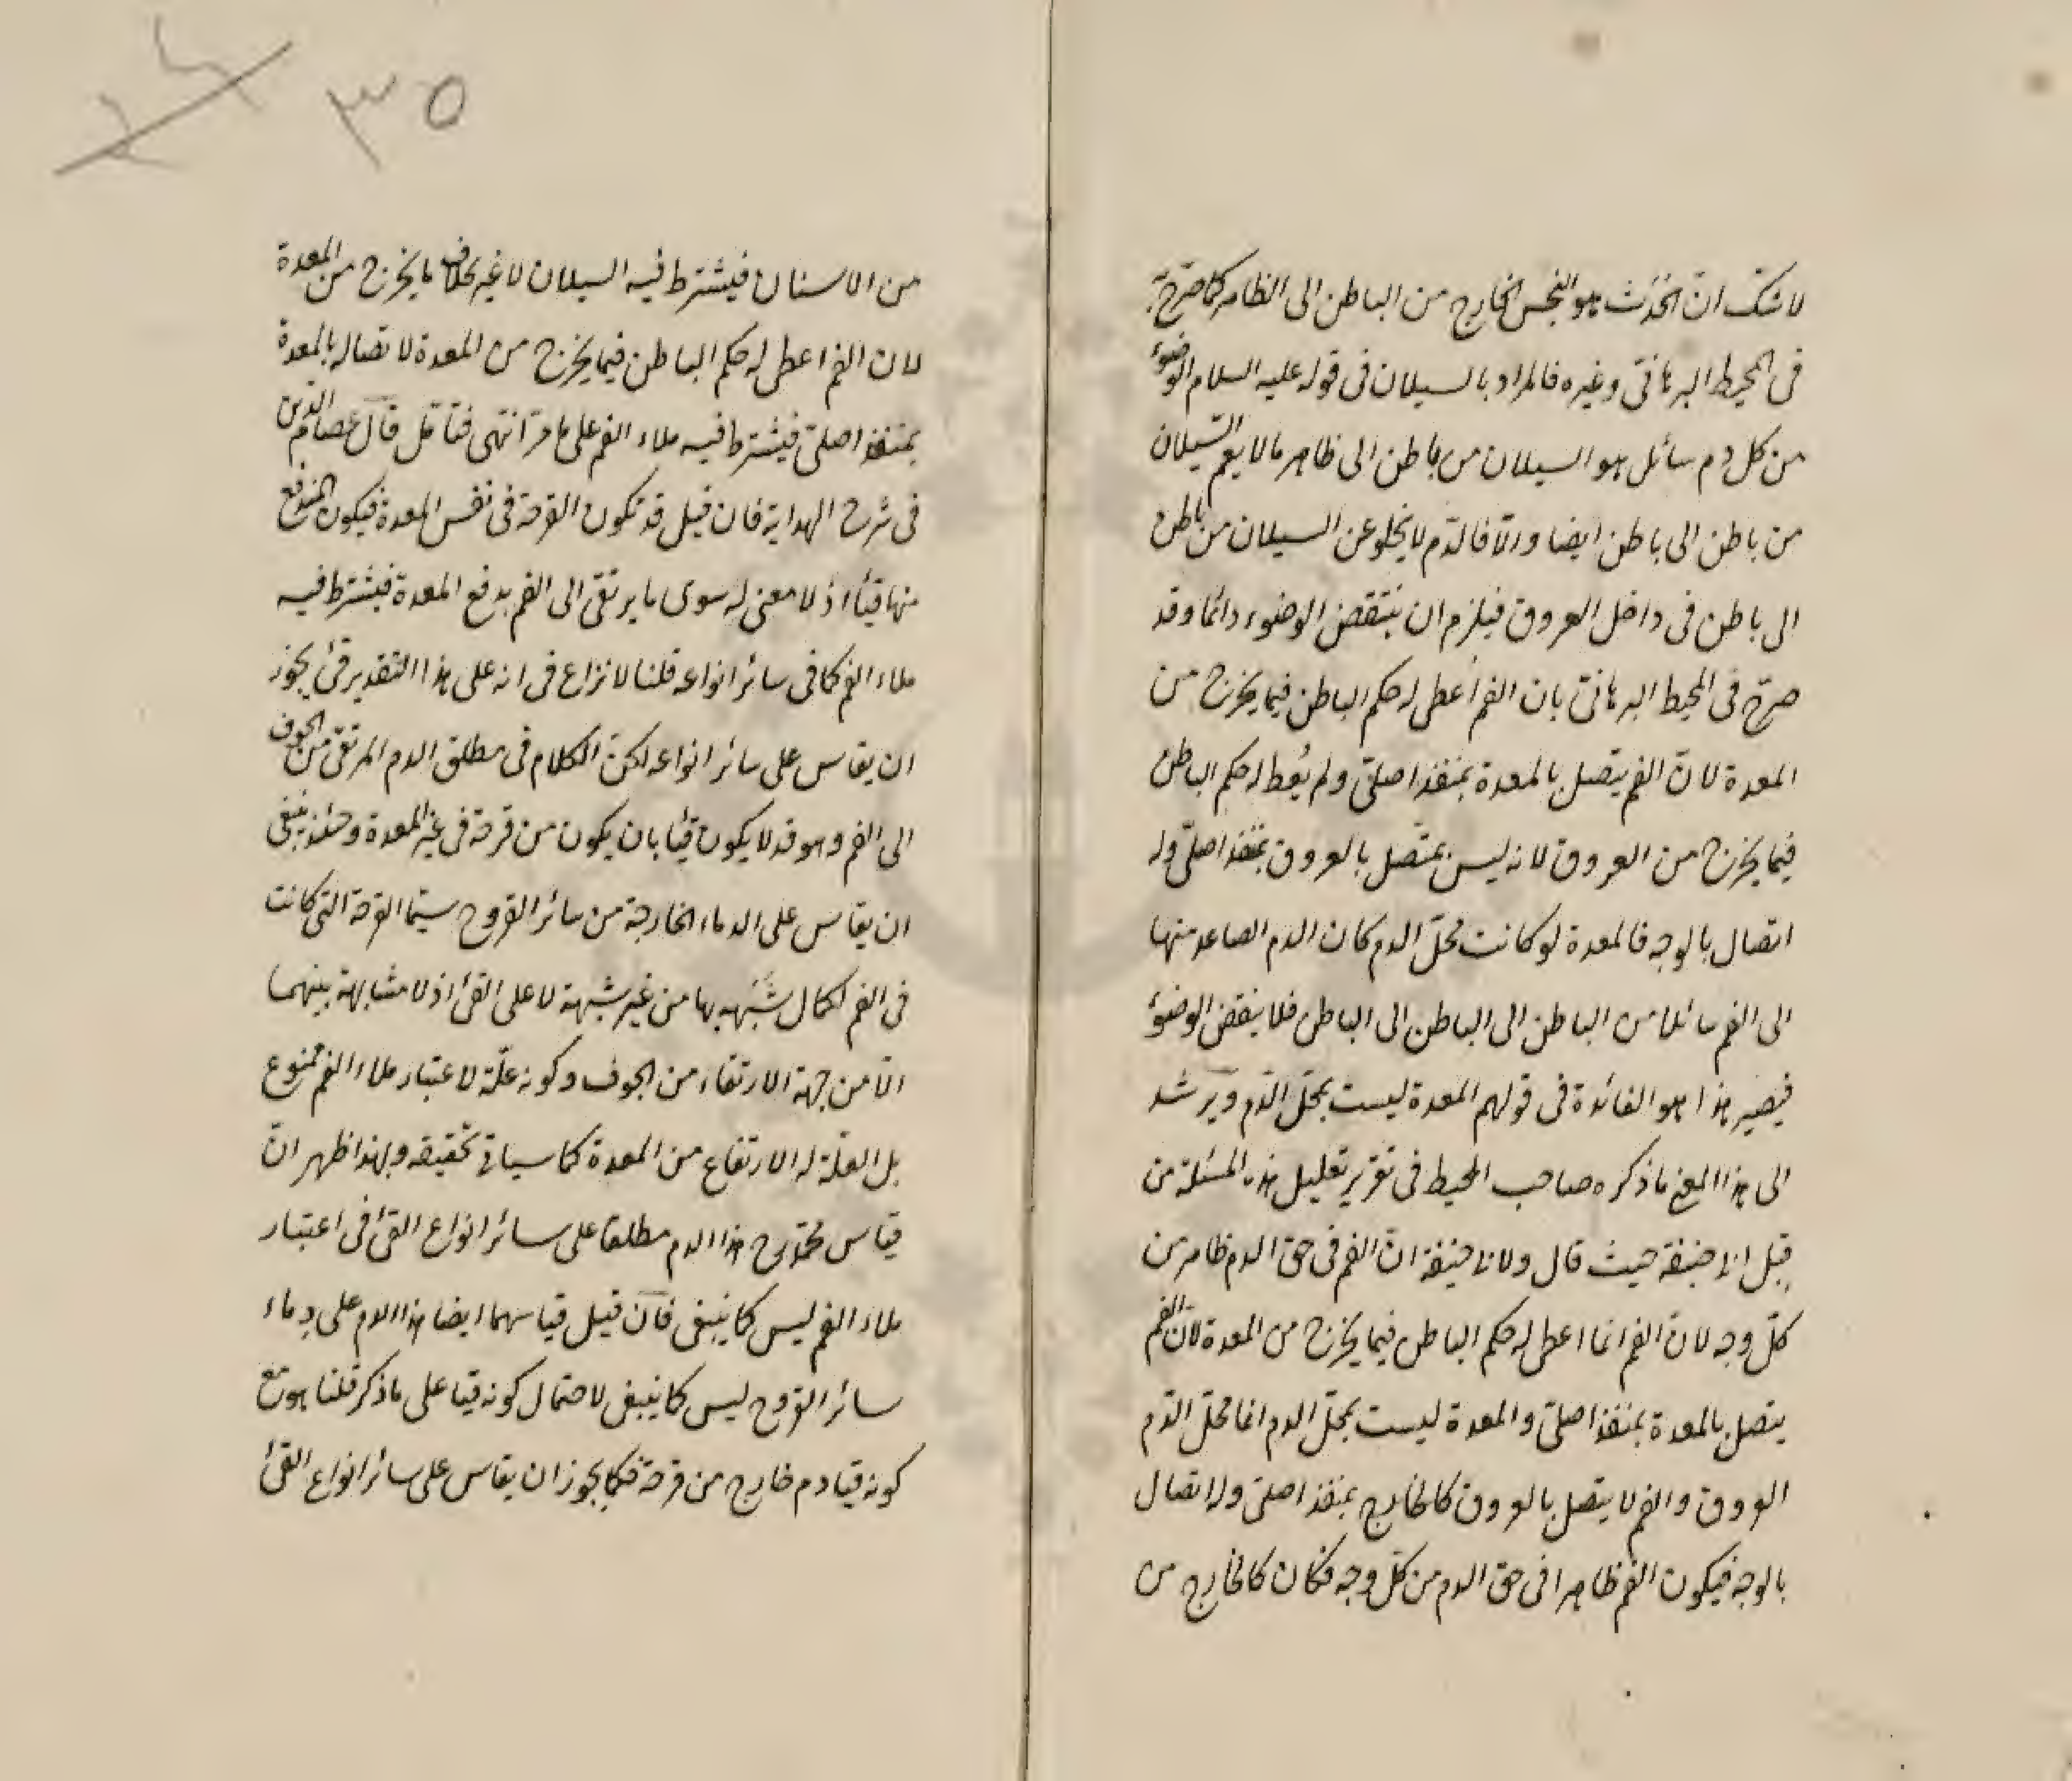 لا شك ان الحَدَث هو النجس الخارج من الباطن الى الظاهر كما صرّح به
فى المحيط البرهانىّ وغيره فالمراد بالسيلان فى قوله عليه السلام الوضوء
من كل دم سائل هو السيلان من باطن الى ظاهر ما لا يعم السّيلان
من باطن الى باطن ايضا والّا فالدّم لا يخلو عن السيلان من باطن
الى باطن فى داخل العروق فيلزم ان ينتقض الوضوء دائما وقد
صرّح فى المحيط البرهانىّ بان الفم اُعطى له حكم الباطن فيما يخرج من
المعدة لانّ الفم يتصل بالمعدة بمنفذ اصلىّ ولم يُعط له حكم الباطن
فيما يخرج من العروق لانه ليس بمتّصل بالعروق بمنفذ اصلىّ وله
اتصال بالوجه فالمعدة لو كانت محلّ الدم كان الدم الصاعد منها
الى الفم سائلا من الباطن الى الباطن الى الباطن فلا ينقض الوضوء
فيصير هذا هو الفائدة فى قولهم المعدة ليست بمحلّ الدّم ويرشد
الى هذا المعنى ما ذكره صاحب المحيط فى تقرير تعليل هذه المسئلة من
قبل ابى حنيفة حيث قال ولابى حنيفة انّ الفم فى حق الدم ظاهر من
كلّ وجه لانّ الفم انما اعطى له حكم الباطن فيما يخرج من المعدة لانّ الفم
يتصل بالمعدة بمنفذ اصلىّ والمعدة ليست بمحلّ الدم انما محلّ الدّم
العروق والفم لا يتصل بالعروق كالخارج بمنفذ اصلىّ وله اتصال
بالوجه فيكون الفم ظاهرا فى حق الدم من كلّ وجه فكان كالخارج من
٣٥
من الاسنان فيشترط فيه السيلان لا غير بخلاف ما يخرج من المعدة
لان الفم اعطى له حكم الباطن فيما يخرج من المعدة لاتصاله بالمعدة
بمنفذ اصلىّ فيشترط فيه ملاء الفم على ما مرّ انتهى فتأمّل قال عصام الدّين
فى شرح الهداية فان قيل قد تكون القرحة فى نفس المعدة فيكون المندفع
منها قيئا اذ لا معنى له سوى ما يرتقى الى الفم بدفع المعدة فيشترط فيه
ملاء الفم كما فى سائر انواعه قلنا لا نزاع فى انه على هذا التقدير قئ يجوز
ان يقاس على سائر انواعه لكنّ الكلام فى مطلق الدم المرتقى من الجوف
الى الفم وهو قد لا يكون قيئا بان يكون من قرحة فى غير المعدة وحينئذ ينبغى
ان يقاس على الدماء الخارجة من سائر القروح سيّما القرحة التى كانت
فى الفم لكمال شَبَهه بها من غير شبهة لا على القئ اذ لا مشابهة بينهما
الّا من جهة الارتقاء من الجوف وكونه علّة لاعتبار ملاء الفم ممنوع
بل العلّة له الارتفاع من المعدة كما سيأتى تحقيقه وبهذا ظهر انّ
قياس محمّد رح هذا الدم مطلقا على سائر انواع القئ فى اعتبار
ملاء الفم ليس كما ينبغى فان قيل قياسهما ايضا هذا الدم على دماء
سائر القروح ليس كما ينبغى لاحتمال كونه قيئا على ما ذكر قلنا هو مع
كونه قيئا دم خارج من قرحة فكما يجوز ان يقاس على سائر انواع القئ